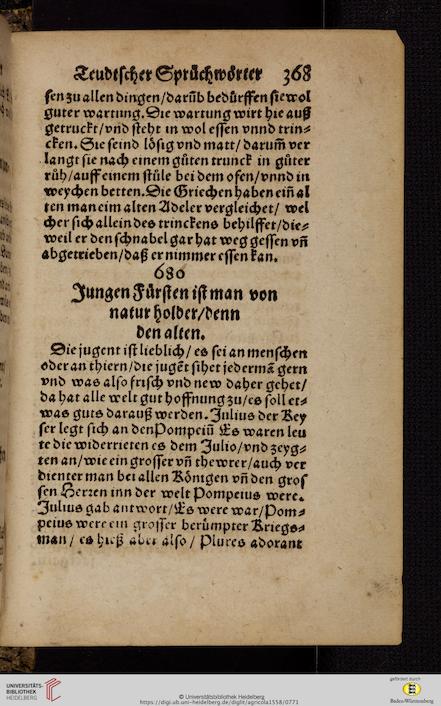 Teudtscher Sprüchwörter 368
sen zu allen dingen/darũb bedürffen sie wol
guter wartung. Die wartung wirt hie auß
getruckt/vnd steht in wol essen vnnd trin⸗
cken. Sie seind lösig vnd matt/darum̃ ver
langt sie nach einem gůten trunck in gůter
růh/auff einem stůle bei dem ofen/vnnd in
weychen betten. Die Griechen haben eiñ al
ten man eim alten Adeler vergleichet/ wel
cher sich allein des trinckens behilffet/die⸗
weil er den schnabel gar hat weg gessen vñ
abgetrieben/daß er nimmer essen kan.
680
Jungen Fürsten ist man von
natur holder/denn
den alten.
Die jugent ist lieblich/ es sei an menschen
oder an thiern/die jugẽt sihet jedermã gern
vnd was also frisch vnd new daher gehet/
da hat alle welt gut hoffnung zu/es soll et⸗
was guts darauß werden. Julius der Key
ser legt sich an den Pompeiũ Es waren leu
te die widerrieten es dem Julio/vnd zeyg⸗
ten an/wie ein grosser vñ thewrer/auch ver
dienter man bei allen Köntgen vñ den gros
sen Herren inn der welt Pompeius were.
Julius gab antwort/Es were war/Pom⸗
peius were ein grosser berümpter Kriegs⸗
man/ es hieß aber also/ Plures adorant
UNIVERSITÄTS-
BIBLIOTHEK
HEIDELBERG
© Universitätsbibliothek Heidelberg
https://digi.ub.uni-heidelberg.de/diglit/agricola1558/0771
gefördert durch
Baden-Württemberg